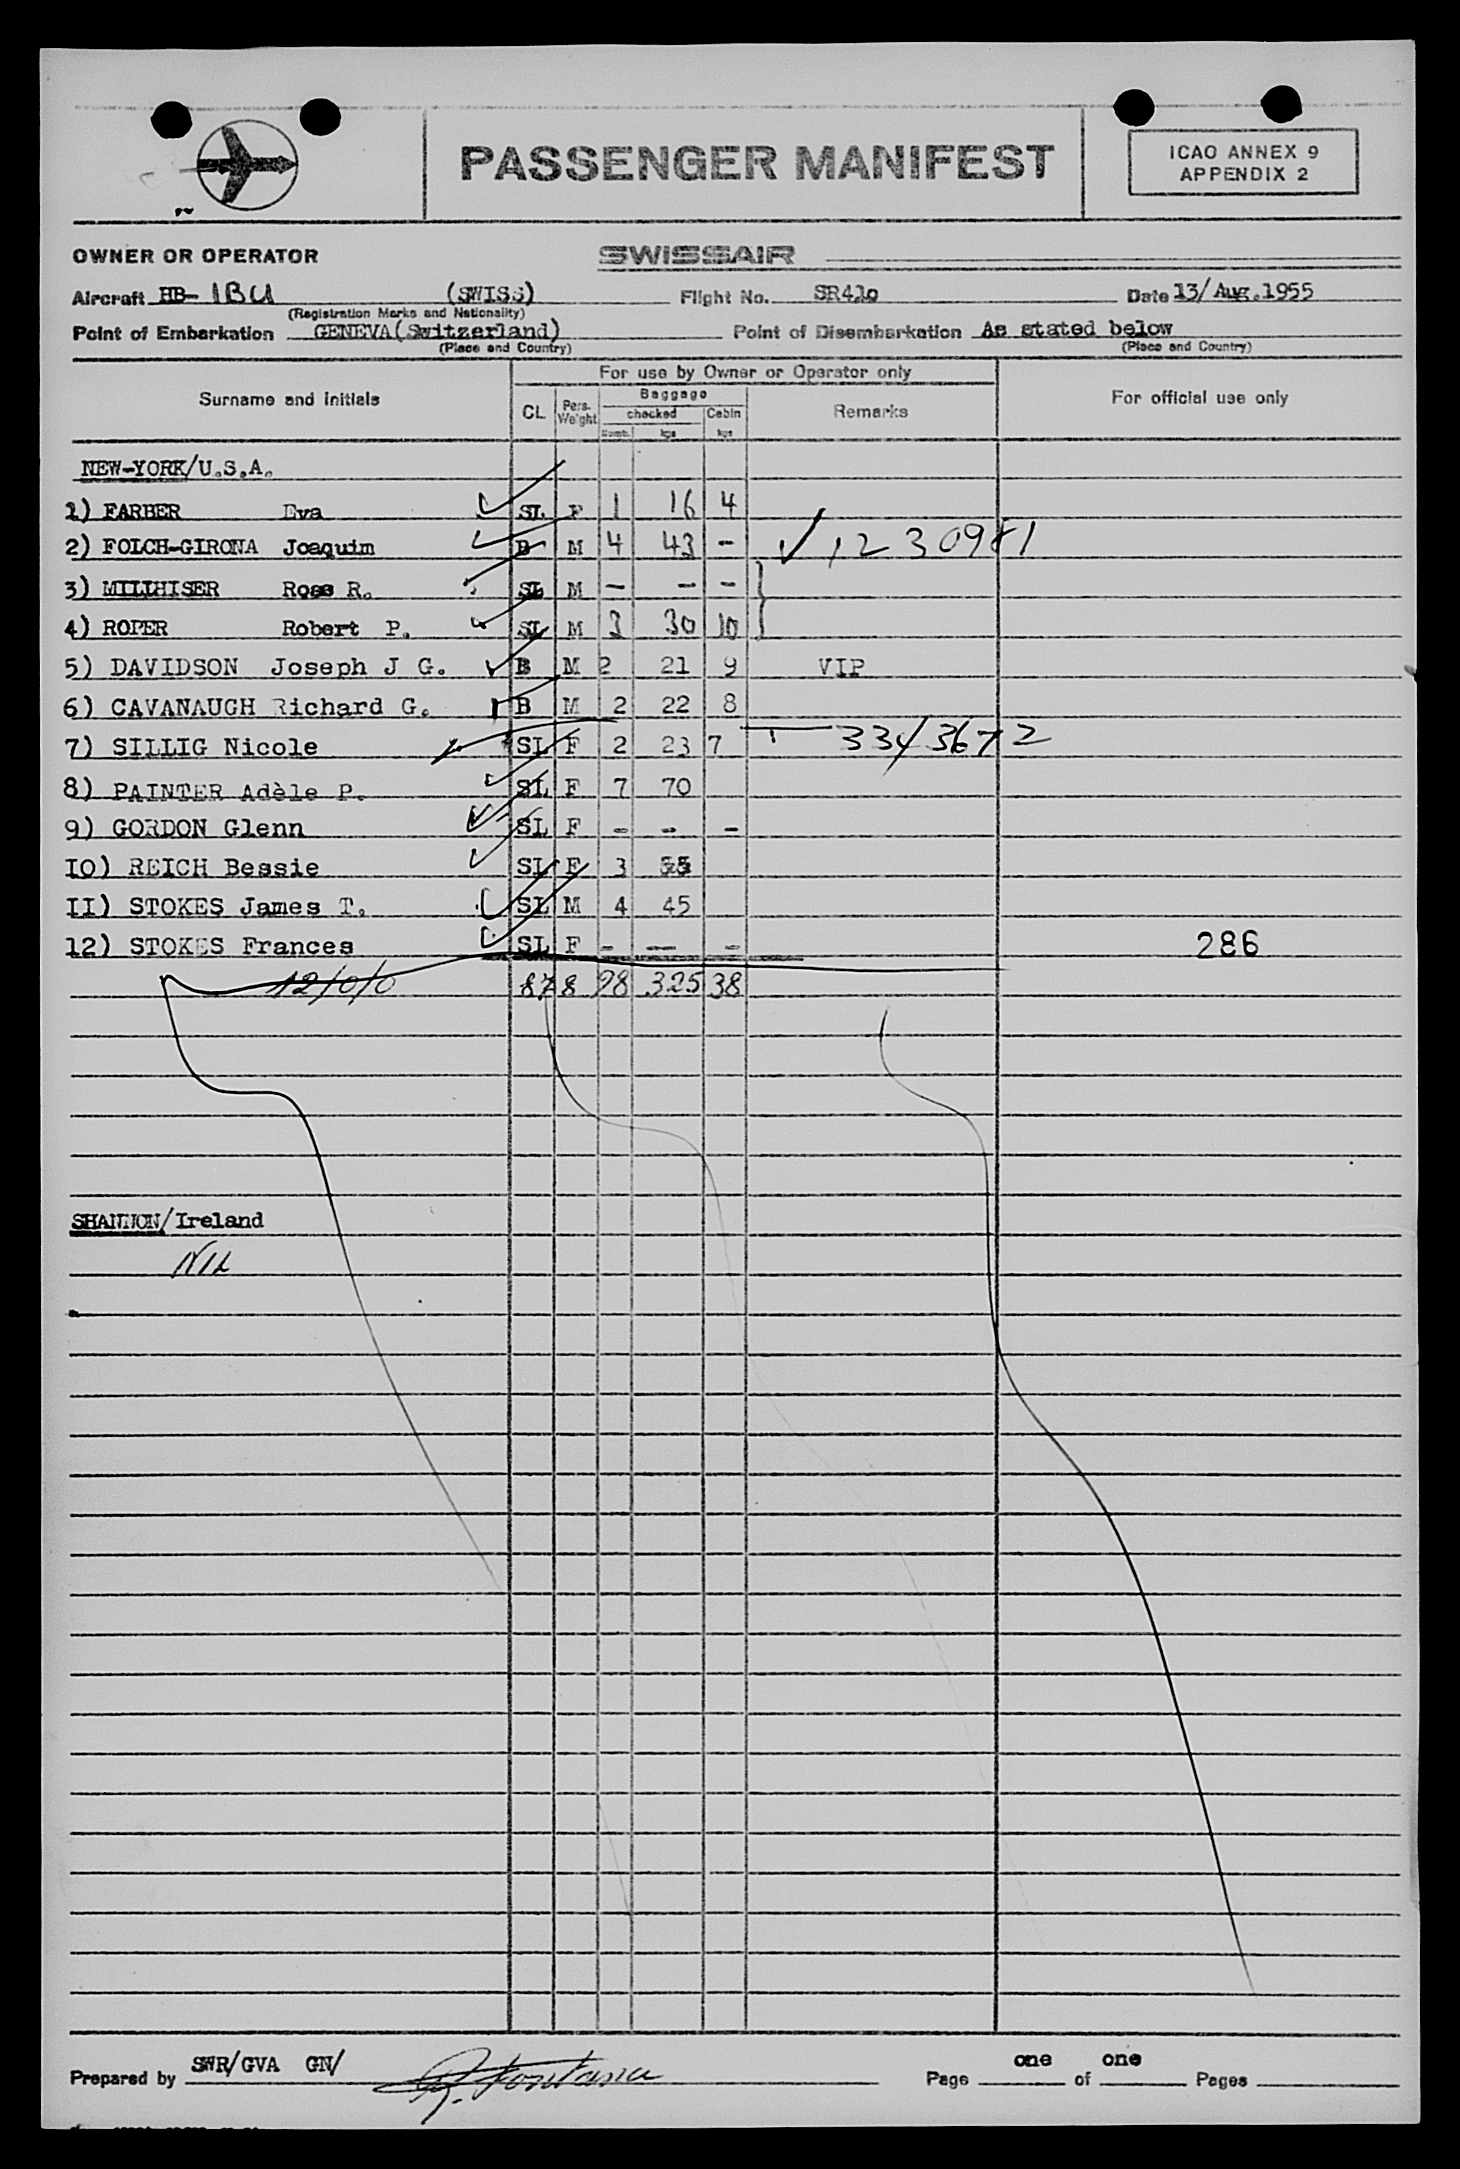 PASSENGER MANIFEST
ICAO ANNEX 9
APPENDIX 2
OWNER OR OPERATOR SWISSAIR
Aircraft HB- IBU (SWISS) Flight No. SR410 Date 13/Aug.1955
(Registration Marks and Nationality)
Point of Embarkation GENEVA(Switzerland) Point of Disembarkation As stated below
(Place and Country) (Place and Country)
For use by Owner or Operator only
Surname and initials CL Pers. Weight Baggage Remarks For official use only
checked Cabin
Numb. kgs kgs
NEW-YORK/U.S.A.
1) FARBER Eva SL F 1 16 4
2) FOLCH-GIRONA Joaquim B M 4 43 - 1230981
3) MILLHISER Ross R. SL M - - -
4) ROPER Robert P. SL M 3 30 10
5) DAVIDSON Joseph J G. B M 2 21 9 VIP
6) CAVANAUGH Richard G. B M 2 22 8
7) SILLIG Nicole SL F 2 23 7 334/3672
8) PAINTER Adèle P. SL F 7 70
9) GORDON Glenn SL F - - -
IO) REICH Bessie SL F 3
II) STOKES James T. SL M 4 45
12) STOKES Frances SL F - - - 286
12/0/0 878 28 325 38
SHANNON/Ireland
NIL
Prepared by SWR/GVA GN/ Page one of one Pages